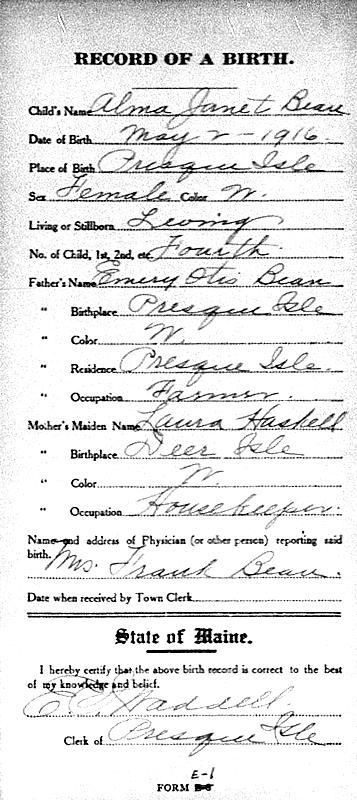 RECORD OF A BIRTH.
Child's Name Alma Janet Bean
Date of Birth May 2 - 1916.
Place of Birth Presque Isle
Sex Female Color W.
Living or Stillborn Living
No. of Child, 1st, 2nd, etc. Fourth.
Father's Name Emery Otis Bean
" Birthplace Presque Isle
" Color W.
" Residence Presque Isle.
" Occupation Farmer.
Mother's Maiden Name Laura Haskell
" Birthplace Deer Isle
" Color W.
" Occupation Housekeeper.
Name and address of Physician (or other person) reporting said
birth. Mrs. Frank Bean.
Date when received by Town Clerk
State of Maine.
I hereby certify that the above birth record is correct to the best
of my knowledge and belief.
Waddell.
Clerk of Presque Isle
E-1
FORM